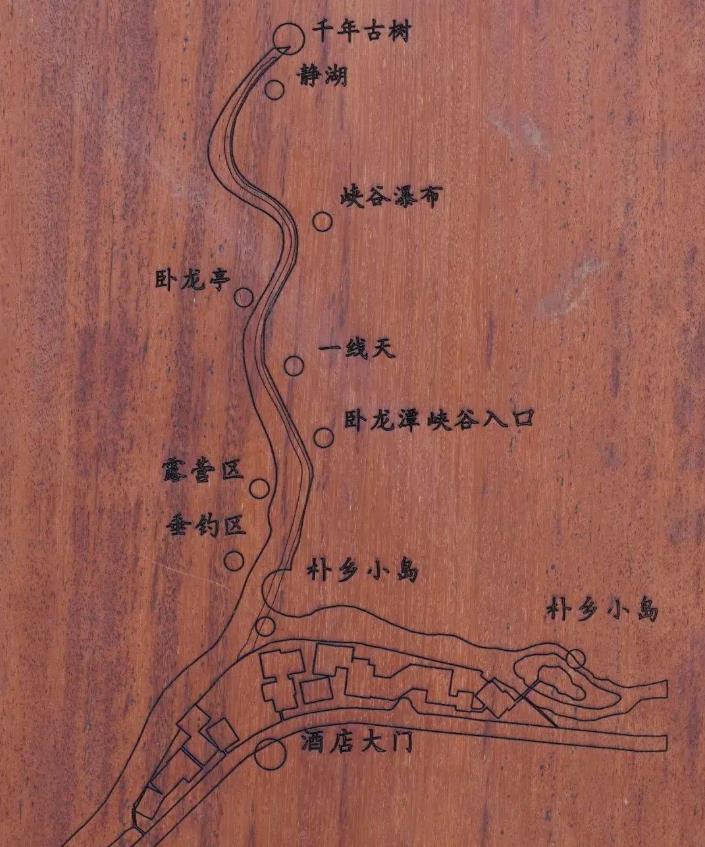 千年古树
静湖
峡谷瀑布
卧龙亭
一线天
卧龙潭峡谷入口
露营区
垂钓区
朴乡小岛
朴乡小岛
酒店大门